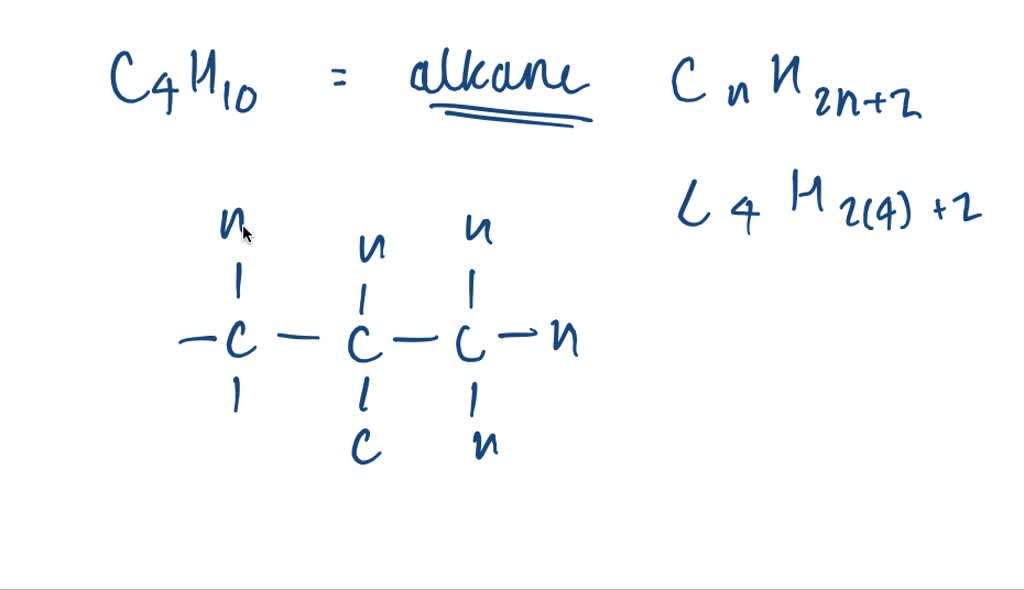 C4H10 = alkane CnH2n+2
C4H2(4)+2
H
H
H
–C–C–C–H
C
H